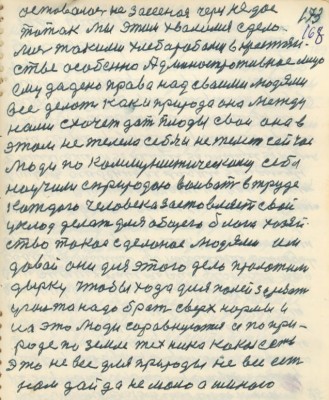 оставалось не засеяная через не дое
то так мы этим хвалимся сдело
лись такими хлебаробами в крестьян-
стве особенно Административное лицо
ему дадено права над своими людями
все делать как и природа она между
нами схочет даст плоды свои она в
этом не жалела себя и не жалеет сейчас
люди по Коммунистическому себя
научили с природою воиват в труде
каждого человека заставляет свой
уклод делат для общего блага хозяй-
ство такое сделоное людями им
давай они для этого дело проложим
дырку чтобы хода для полей
надо брат сверх нормы и
на это люди соравнуются и по при-
роде по земле техника как есть
это не все для природы не все ест
нам дай да не мало а много